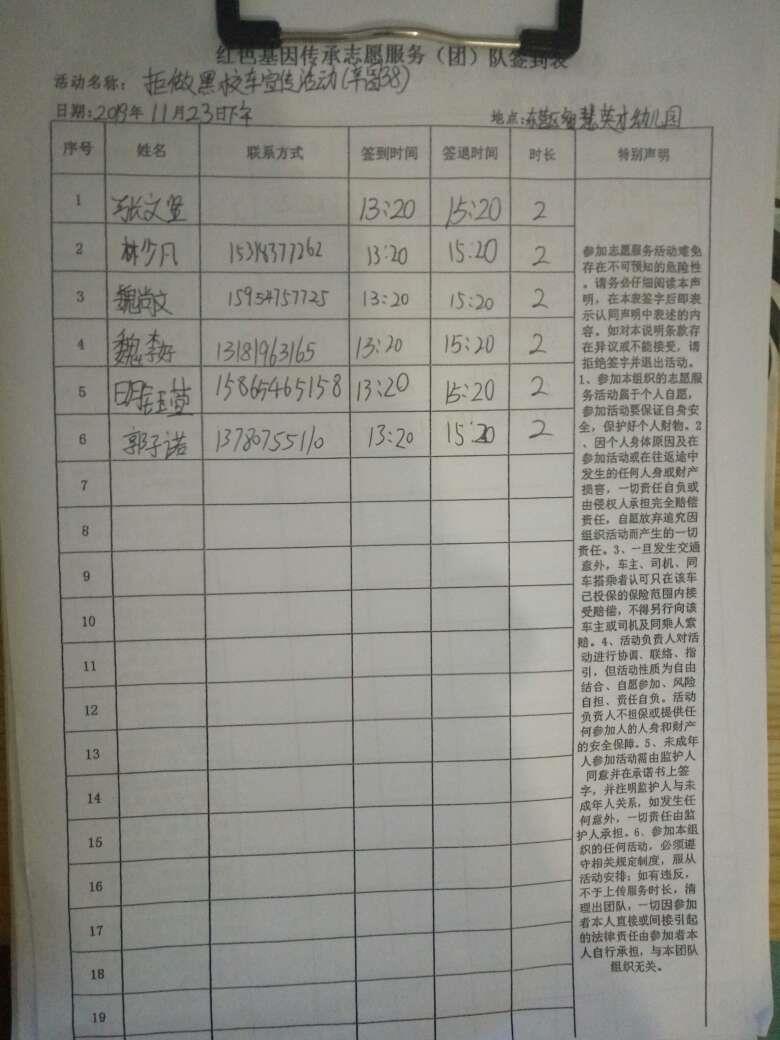 红色基因传承志愿服务（团）队签到表
活动名称：拒做黑校车宣传活动
日期：2019年11月23日下午 地点：智慧英才幼儿园
序号 姓名 联系方式 签到时间 签退时间 时长 特别声明
1 张文 13:20 15:20 2
2 林少凡 15314377262 13:20 15:20 2
3 魏尚文 15954757725 13:20 15:20 2
4 魏李好 13181963165 13:20 15:20 2
5 15865465158 13:20 15:20 2
6 郭子诺 13780755110 13:20 15:20 2
7
8
9
10
11
12
13
14
15
16
17
18
19
参加志愿服务活动难免
存在不可预知的危险性
。请务必仔细阅读本声
明，在本表签字后即表
示认同声明中表述的内
容。如对本说明条款存
在异议或不能接受，请
拒绝签字并退出活动。
1、参加本组织的志愿服
务活动属于个人自愿，
参加活动要保证自身安
全，保护好个人财物。2
、因个人身体原因及在
参加活动或在往返途中
发生的任何人身或财产
损害，一切责任自负或
由侵权人承担完全赔偿
责任，自愿放弃追究因
组织活动而产生的一切
责任。3、一旦发生交通
意外，车主、司机、同
车搭乘者认可只在该车
已投保的保险范围内接
受赔偿，不得另行向该
车主或司机及同乘人索
赔。4、活动负责人对活
动进行协调、联络、指
引，但活动性质为自由
结合、自愿参加、风险
自担、责任自负。活动
负责人不担保或提供任
何参加人的人身和财产
的安全保障。5、未成年
人参加活动需由监护人
同意并在承诺书上签
字，并注明监护人与未
成年人关系，如发生任
何意外，一切责任由监
护人承担。6、参加本组
织的任何活动，必须遵
守相关规定制度，服从
活动安排；如有违反，
不予上传服务时长，清
理出团队，一切因参加
者本人直接或间接引起
的法律责任由参加者本
人自行承担，与本团队
组织无关。